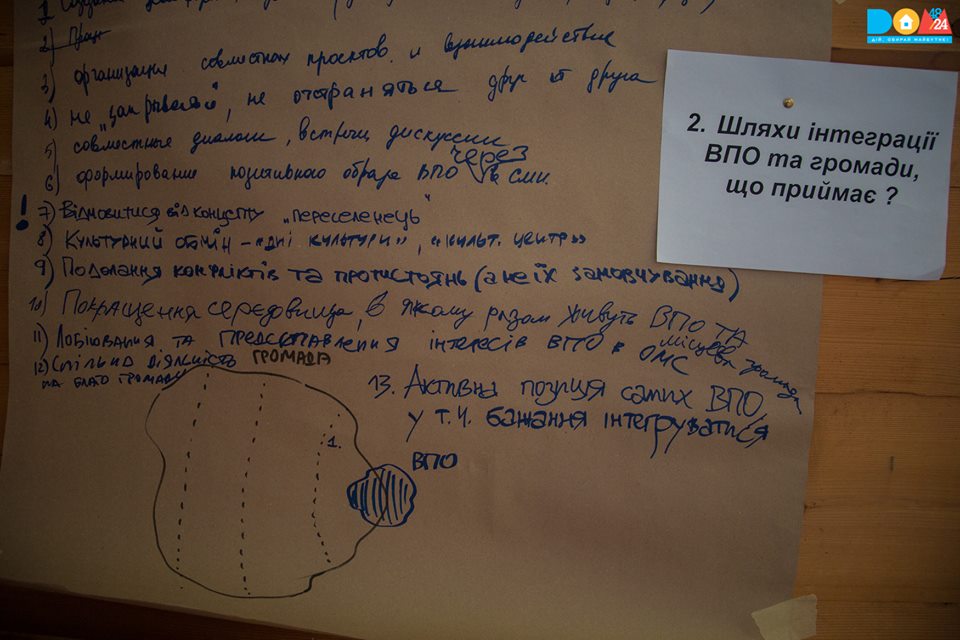 DOM 48/24
ДІЙ, ОБИРАЙ МАЙБУТНЄ!
2. Шляхи інтеграції
ВПО та громади,
що приймає ?
1.
2)
3) организация совместных проектов и взаимодействие
4) не „закрываться", не отстраняться друг от друга
5) совместные диалоги, встречи, дискуссии
6) формирование позитивного образа ВПО через в СМИ.
! 7) Відмовитися від концепту „переселенець"
8) Культурний обмін – «дні культури», «культ. центр»
9) Подолання конфліктів та протистоянь (а не їх замовчування)
10) Покращення середовища, в якому разом живуть ВПО та місцева громада
11) Лобіювання та представлення інтересів ВПО в ОМС
12) Спільна діяльність
на благо громади
13. Активна позиція самих ВПО,
у т.ч. бажання інтегруватися
ГРОМАДА
1.
ВПО